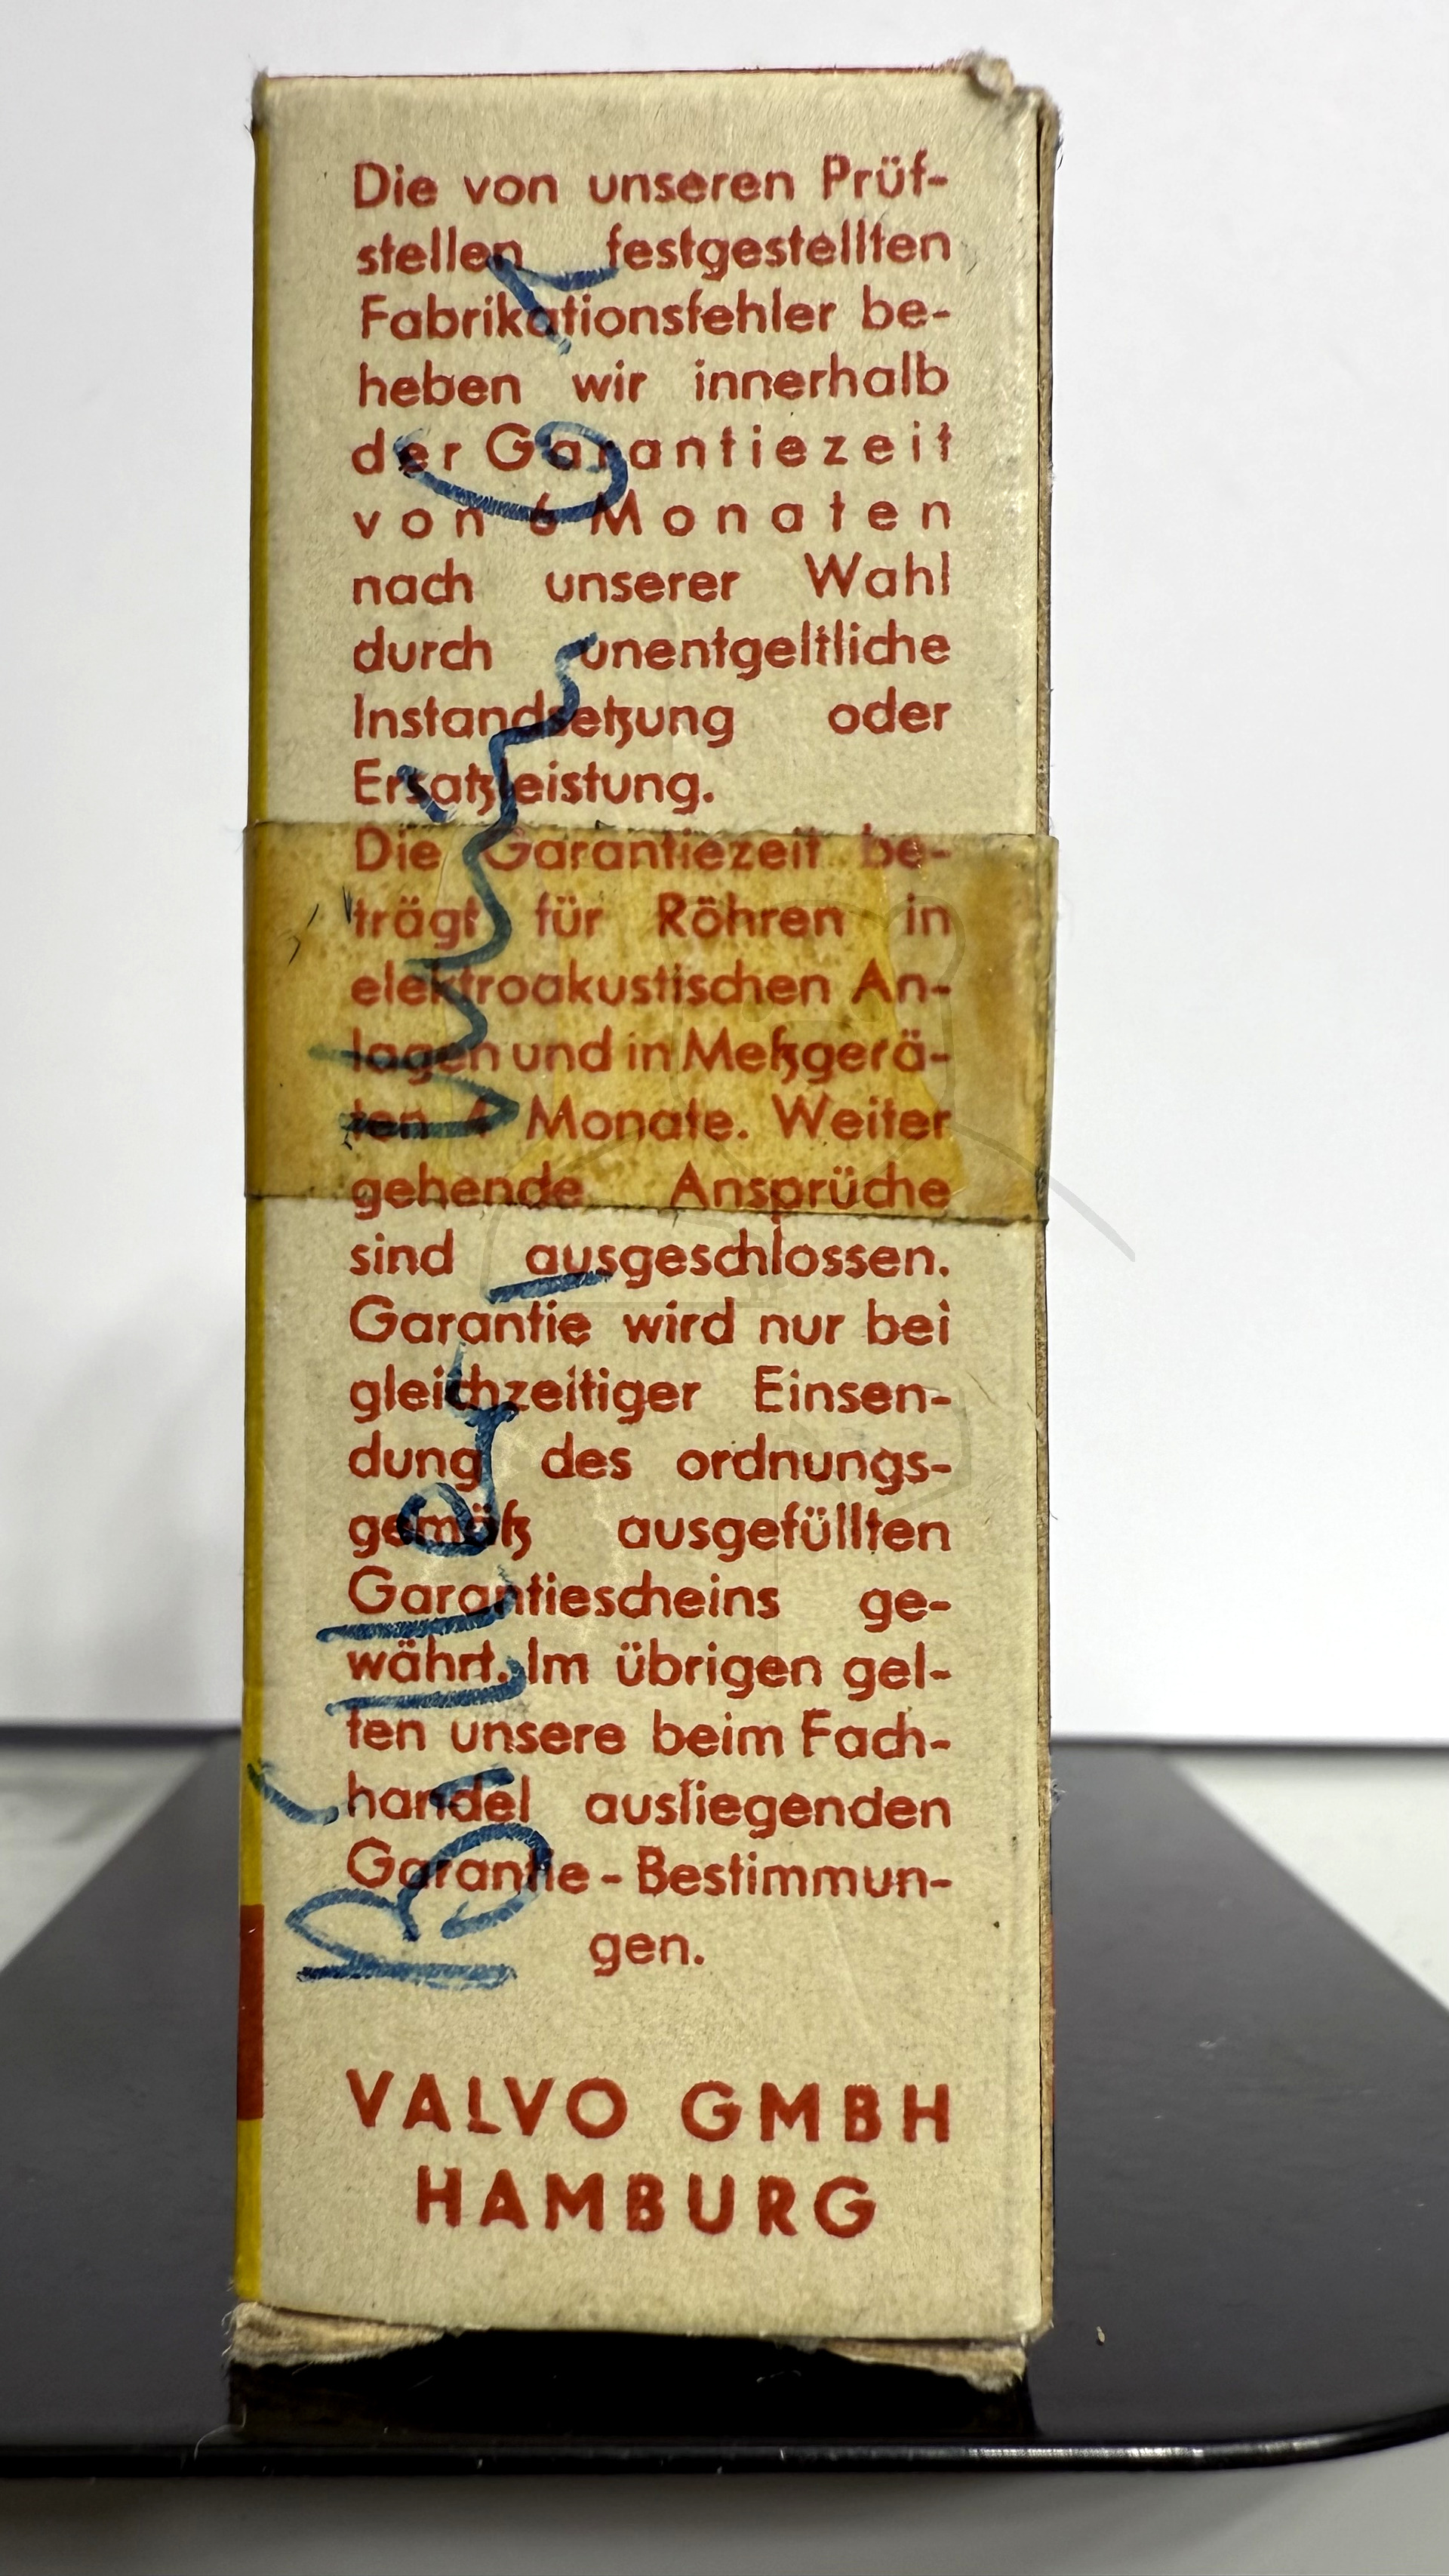 Die von unseren Prüf-
stellen festgestellten
Fabrikationsfehler be-
heben wir innerhalb
der Garantiezeit
von 6 Monaten
nach unserer Wahl
durch unentgeltliche
Instandsetzung oder
Ersatzleistung.
Die Garantiezeit be-
trägt für Röhren in
elektroakustischen An-
lagen und in Meßgerä-
ten Monate. Weiter
gehende Ansprüche
sind ausgeschlossen.
Garantie wird nur bei
gleichzeitiger Einsen-
dung des ordnungs-
gemäß ausgefüllten
Garantiescheins ge-
währt. Im übrigen gel-
ten unsere beim Fach-
handel ausliegenden
Garantie - Bestimmun-
gen.
VALVO GMBH
HAMBURG